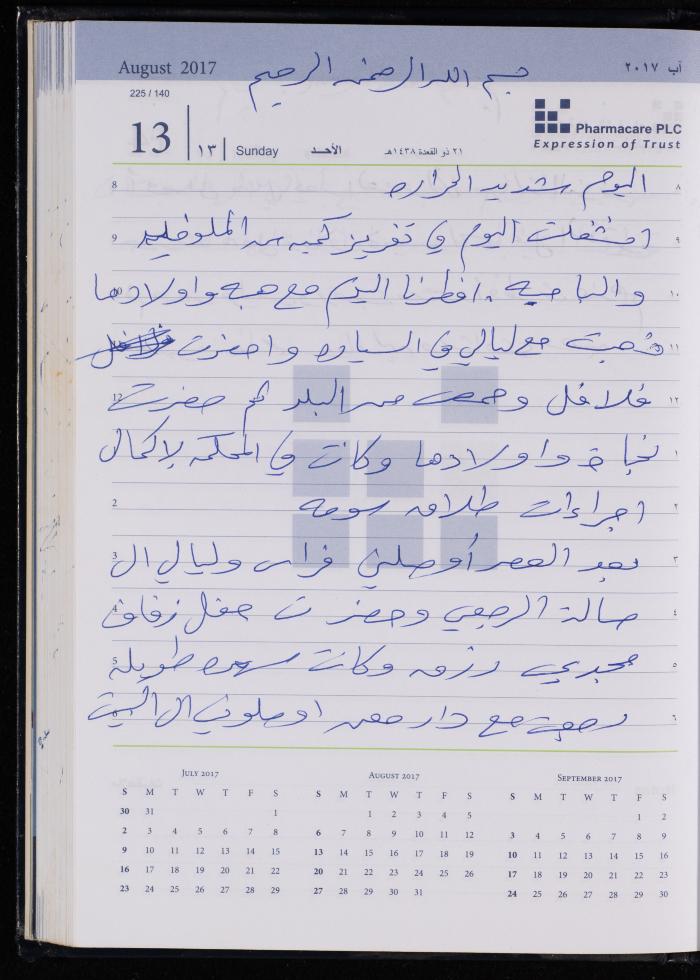 August 2017
بسم الله الرحمن الرحيم
آب ٢٠١٧
225 / 140
13
١٣
Sunday
الأحـد
٢١ ذو القعدة ١٤٣٨هـ
Pharmacare PLC
Expression of Trust
8 اليوم شديد الحراره ٨
9 انشغلت اليوم في تفريز كميه من الملوخيه ٩
10 والباميه . افطرنا اليوم مع هبه واولادها ١٠
مع ليالي في السياره واحضرت ١١
12 فلافل وحمص من البلد ثم حضرت ١٢
نجاح واولادها وكانت في المحكمه لإكمال ١
2 اجراءات طلاق ٢
3 بعد العصر أوصلني فراس وليالي ال ٣
4 صالة وحضرت حفل زفاف ٤
5 مجدي رزق وكانت سهره طويله ٥
مع دار اوصلوني ال البيت ٦
July 2017
S M T W T F S
30 31 1
2 3 4 5 6 7 8
9 10 11 12 13 14 15
16 17 18 19 20 21 22
23 24 25 26 27 28 29
August 2017
S M T W T F S
1 2 3 4 5
6 7 8 9 10 11 12
13 14 15 16 17 18 19
20 21 22 23 24 25 26
27 28 29 30 31
September 2017
S M T W T F S
1 2
3 4 5 6 7 8 9
10 11 12 13 14 15 16
17 18 19 20 21 22 23
24 25 26 27 28 29 30